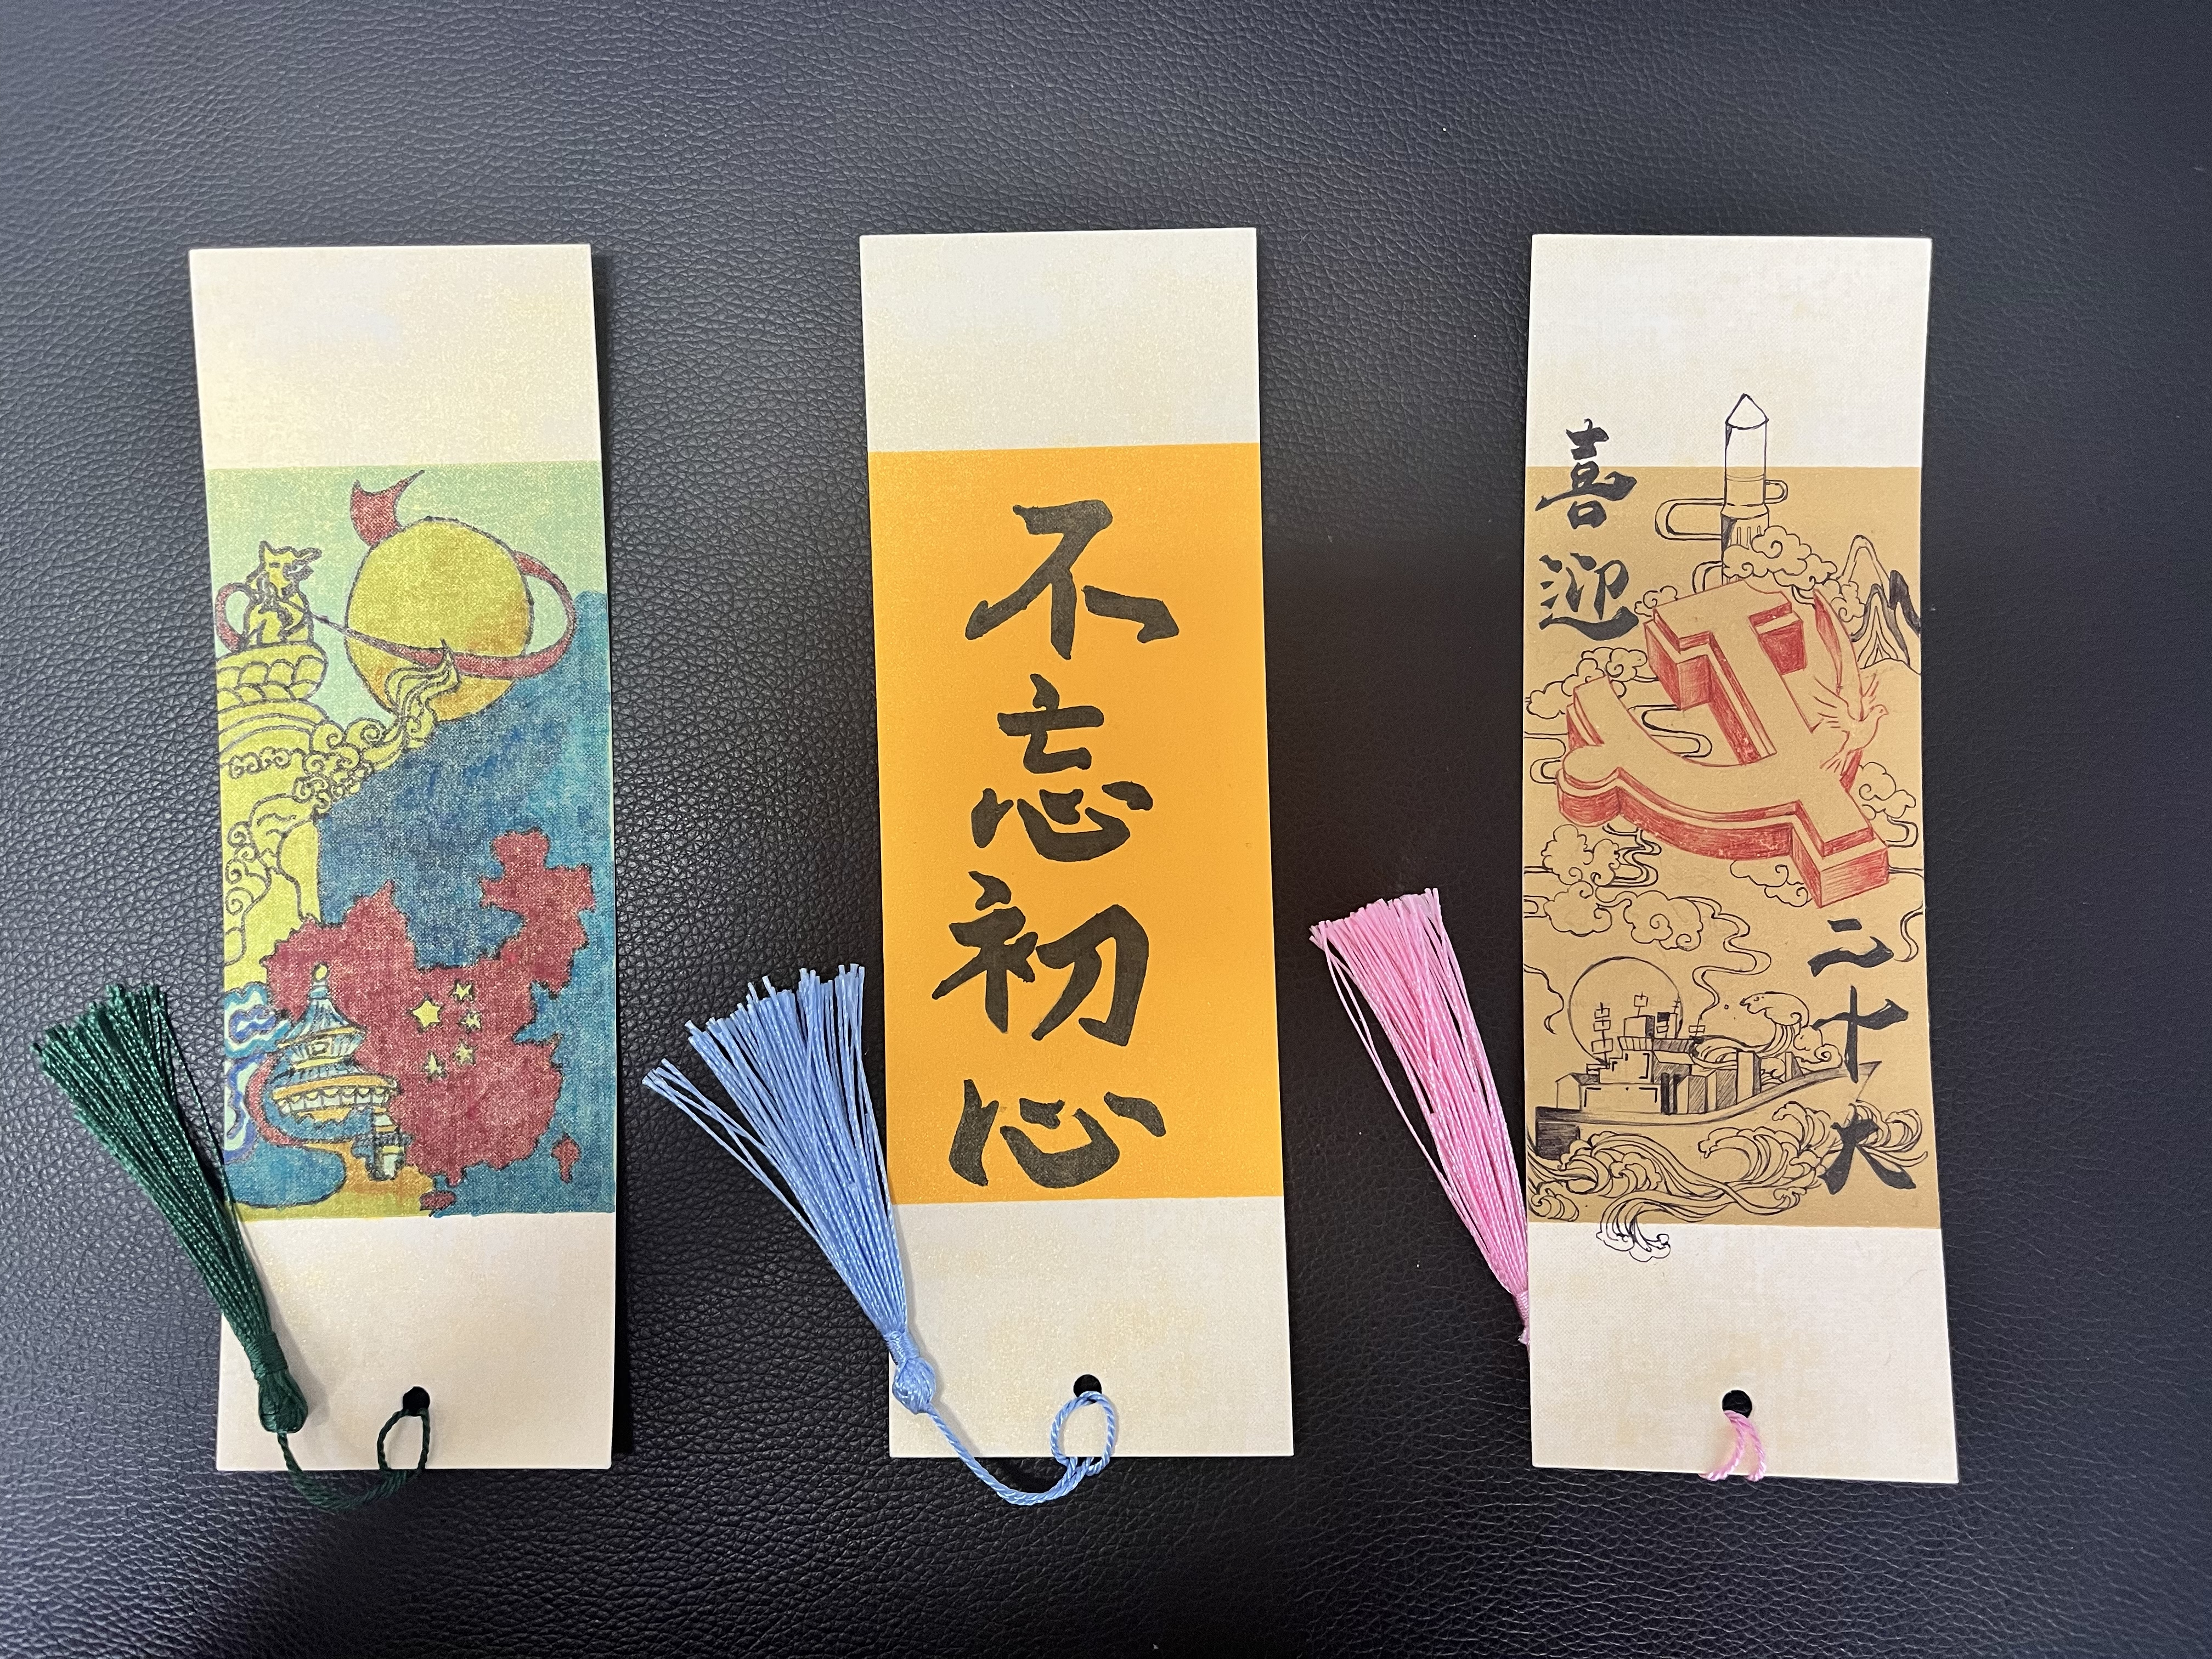 不忘初心
喜迎
二十大